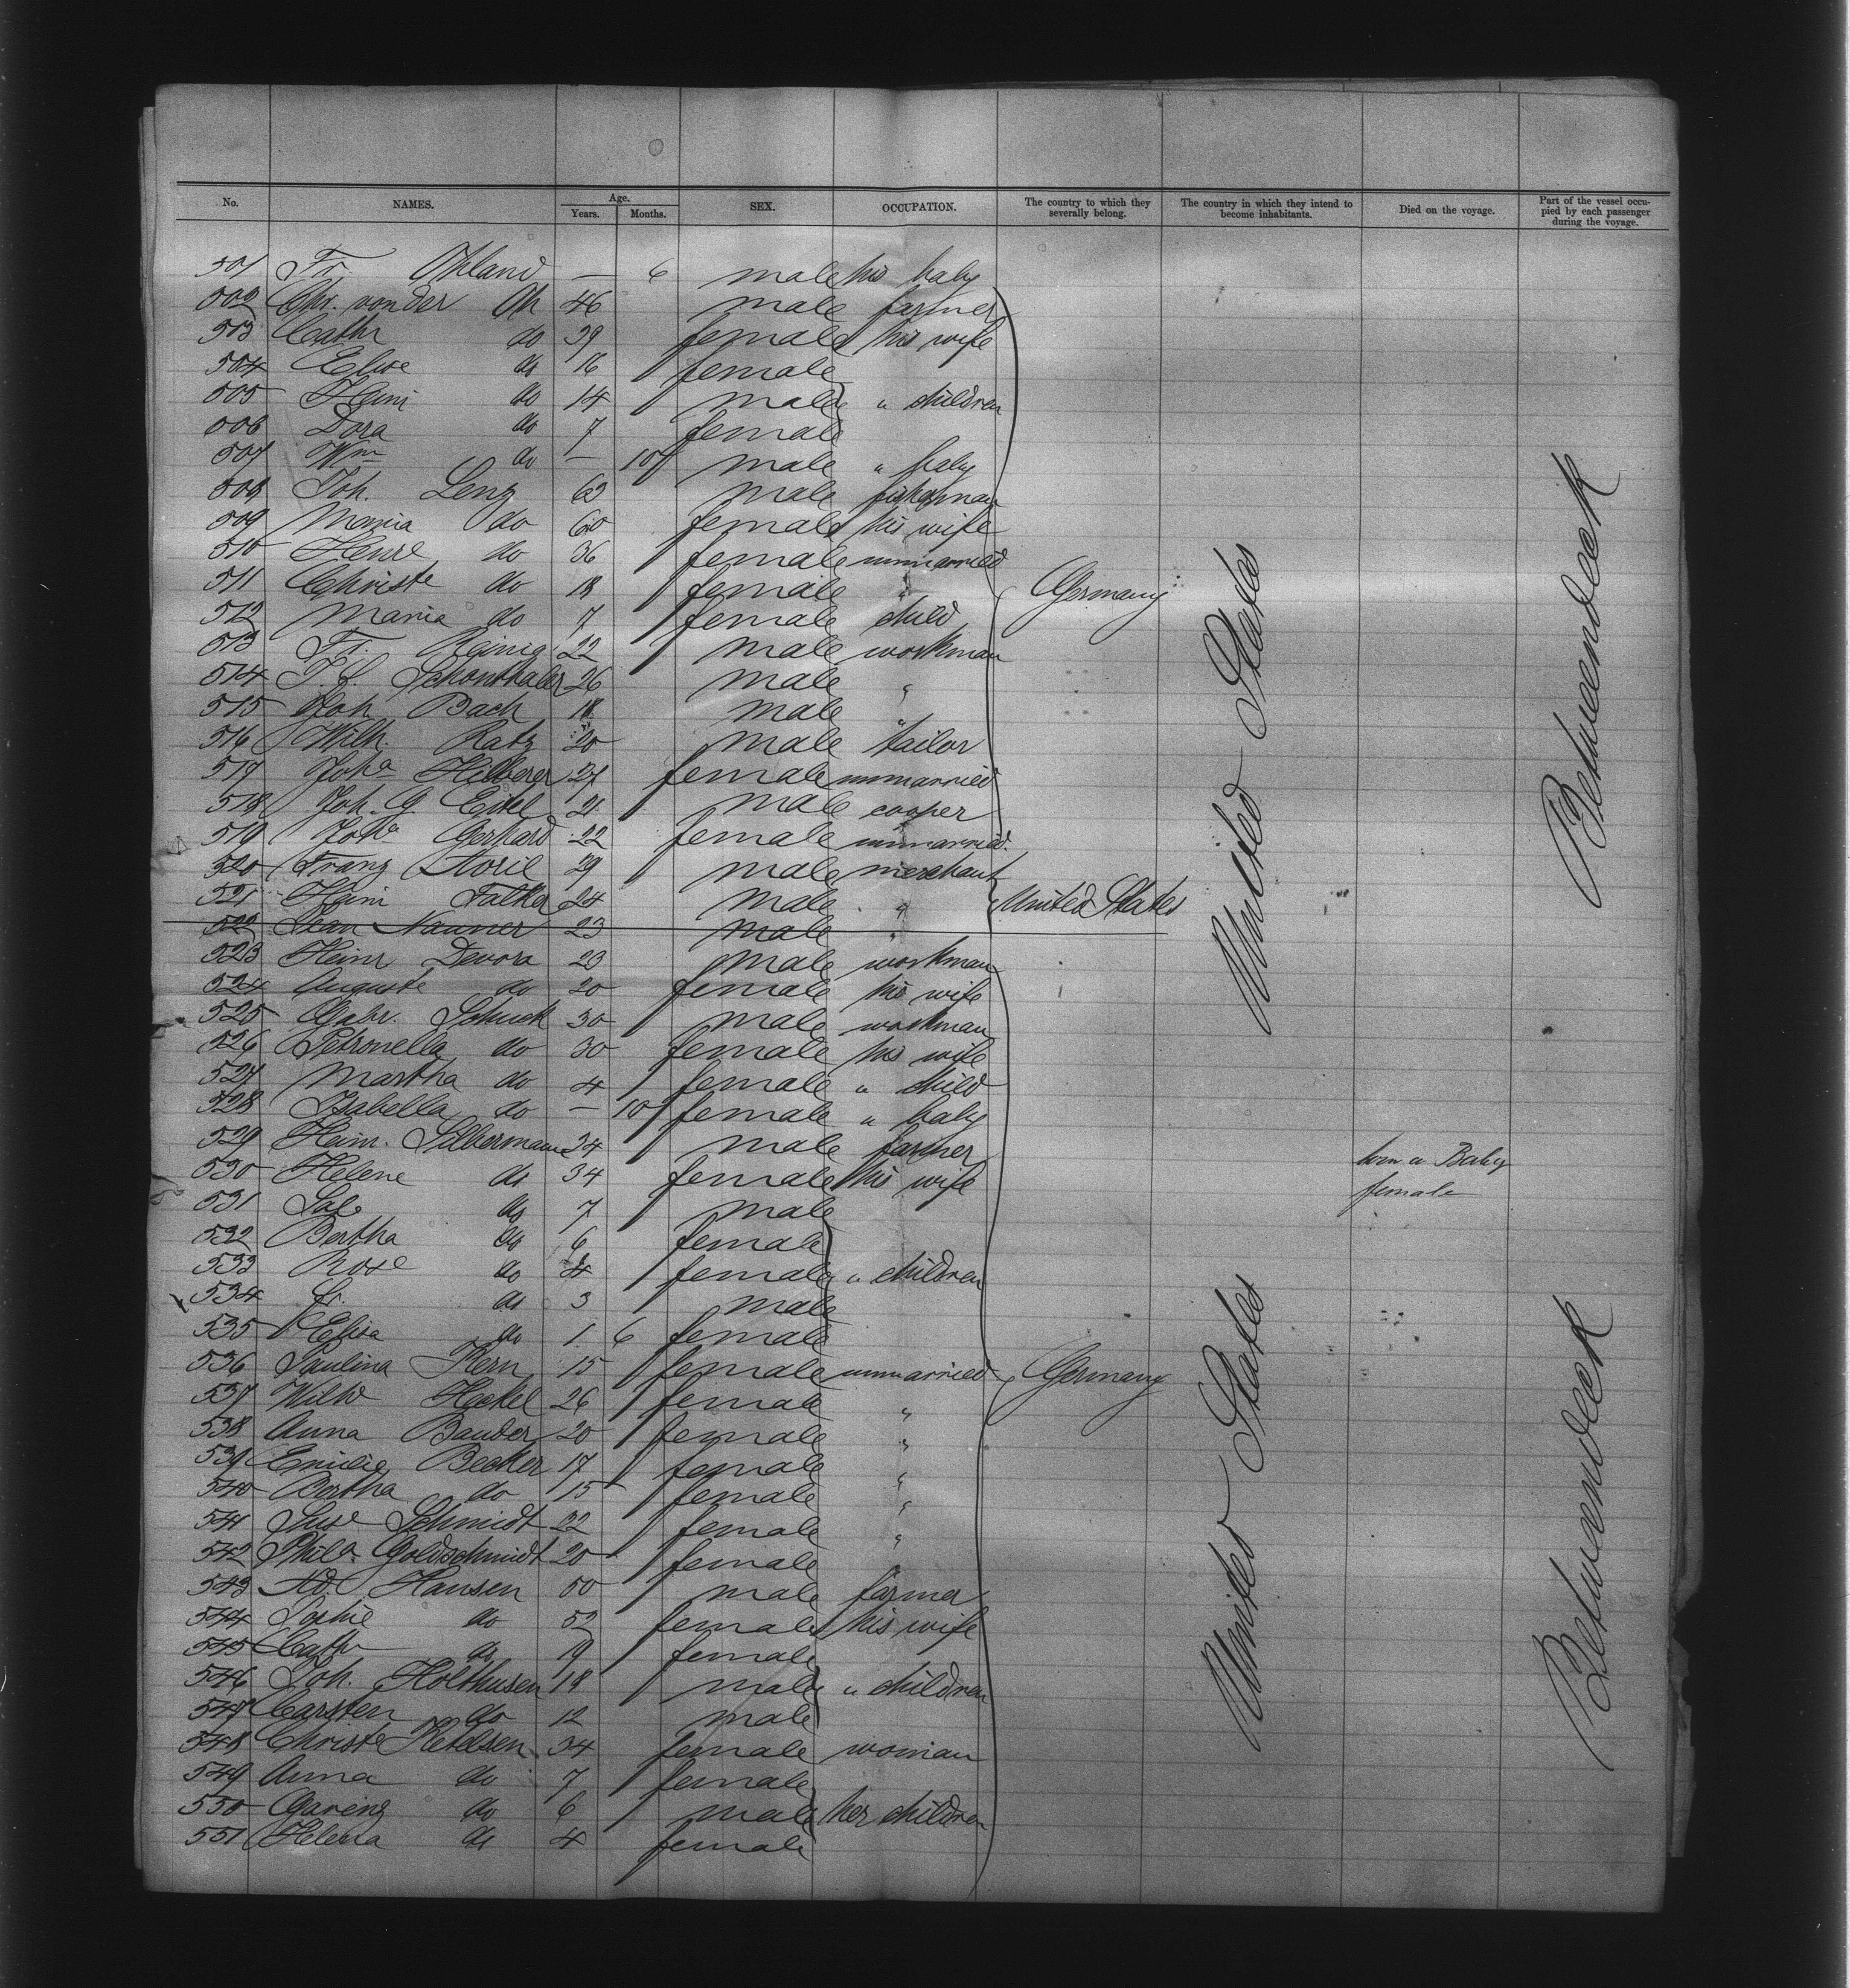 No. NAMES. Age. Years. Months. SEX. OCCUPATION. The country to which they severally belong. The country in which they intend to become inhabitants. Died on the voyage. Part of the vessel occupied by each passenger during the voyage.
501 Fr. Ohland — 6 male his baby
502 Chr. von der Oh 46 male farmer
503 Cathr do 39 female his wife
504 Elise do 16 female
505 Heinr do 14 male " children
506 Dora do 7 female
507 Wm do — 10 male " baby
508 Joh. Lenz 63 male
509 Maria do 60 female his wife
510 Henre do 36 female unmarried
511 Christe do 18 female " Germany
512 Maria do 7 female child
513 Fr. 22 male workman
514 Schonthaler 26 male "
515 Joh. Bach 18 male "
516 Wilh. Katz 20 male tailor
517 Joha Hilberer 27 female unmarried
518 Joh. G. Eitel 21 male cooper
519 Joha Gerhard 22 female unmarried
520 Franz 29 male merchant
521 Heinr Falther 24 male " United States
522 Jean Nanner 23 male "
523 Heinr Devora 23 male workman
524 Auguste do 20 female his wife
525 Gabr. Schuck 30 male workman
526 Petronella do 30 female his wife
527 Martha do 4 female " child
528 Isabella do — 10 female " baby
529 Heinr. Silbermann 34 male farmer
530 Helene do 34 female his wife born a Baby female
531 Sal. do 7 male
532 Bertha do 6 female
533 Rose do 4 female " children
534 do 3 male
535 Elisa do 1 6 female
536 Paulina Kern 15 female unmarried Germany
537 Wilhe Heckel 26 female "
538 Anna Bauder 20 female "
539 Emilie Becker 17 female "
540 Bertha do 15 female "
541 Luise Schmidt 22 female "
542 Phila Goldschmidt 20 female "
543 Ad. Hansen 50 male farmer
544 Sophie do 52 female his wife
545 Cathr do 19 female
546 Joh. Holthusen 18 male " children
547 Carsten do 12 male
548 Christe Ketelsen 34 female woman
549 Anna do 7 female
550 do 6 male her children
551 Helena do 4 female
United States
United States
Betweendeck
Betweendeck